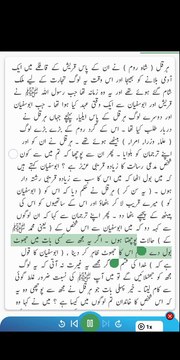 ہرقل (شاہ روم) نے ان کے پاس قریش کے قافلے میں ایک
آدمی بلانے کو بھیجا اور اس وقت یہ لوگ تجارت کے لیے ملک
شام گئے ہوئے تھے اور یہ وہ زمانہ تھا جب رسول اللہ ﷺ نے
قریش اور ابوسفیان سے ایک وقتی عہد کیا ہوا تھا۔ جب ابوسفیان
اور دوسرے لوگ ہرقل کے پاس ایلیاء پہنچے جہاں ہرقل نے
دربار طلب کیا تھا۔ اس کے گرد روم کے بڑے بڑے لوگ
(علماء وزراء امراء) بیٹھے ہوئے تھے۔ ہرقل نے ان کو اور
اپنے ترجمان کو بلوایا۔ پھر ان سے پوچھا کہ تم میں سے کون
شخص مدعی رسالت کا زیادہ قریبی عزیز ہے؟ ابوسفیان کہتے ہیں
کہ میں بول اٹھا کہ میں اس کا سب سے زیادہ قریبی رشتہ دار
ہوں۔ (یہ سن کر) ہرقل نے حکم دیا کہ اس کو (ابوسفیان
کو) میرے قریب لا کر بٹھاؤ اور اس کے ساتھیوں کو اس کی
پیٹھ کے پیچھے بٹھا دو۔ پھر اپنے ترجمان سے کہا کہ ان لوگوں
سے کہہ دو کہ میں ابوسفیان سے اس شخص کے (یعنی محمد ﷺ
کے) حالات پوچھتا ہوں۔ اگر یہ مجھ سے کسی بات میں جھوٹ
بول دے تو تم اس کا جھوٹ ظاہر کر دینا، (ابوسفیان کا قول
ہے کہ) خدا کی قسم! اگر مجھے یہ غیرت نہ آتی کہ یہ لوگ
مجھ کو جھٹلائیں گے تو میں آپ ﷺ کی نسبت ضرور غلط گوئی
سے کام لیتا۔ خیر پہلی بات جو ہرقل نے مجھ سے پوچھی وہ یہ
کہ اس شخص کا خاندان تم لوگوں میں کیسا ہے؟ میں نے کہا وہ
1x